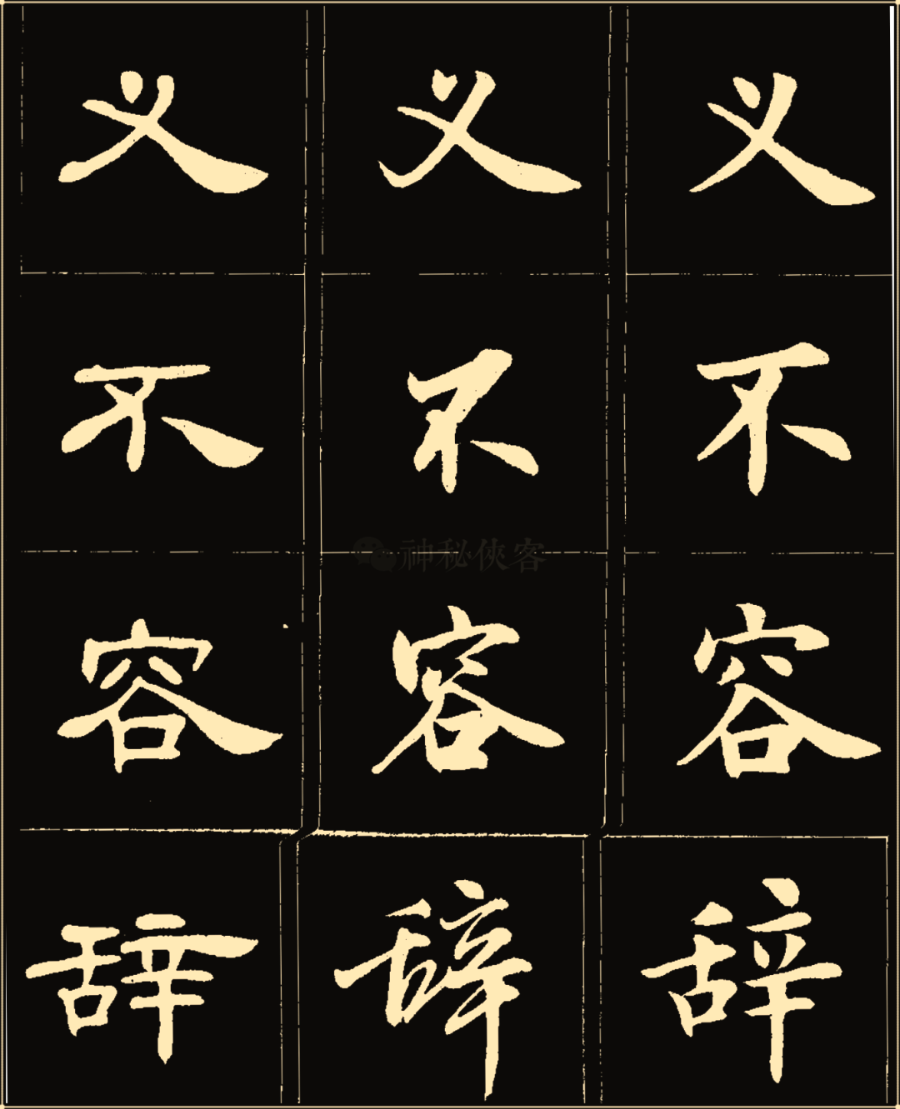 义 义 义
不 不 不
神秘侠客
容 容 容
辞 辞 辞